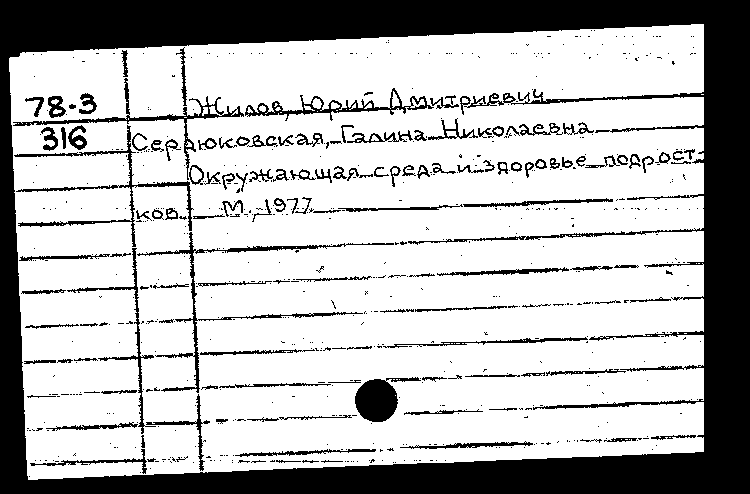 78-3 Жилов, Юрий Дмитриевич
316 Сердюковская, Галина Николаевна
Окружающая среда и здоровье подрост-
ков М., 1977